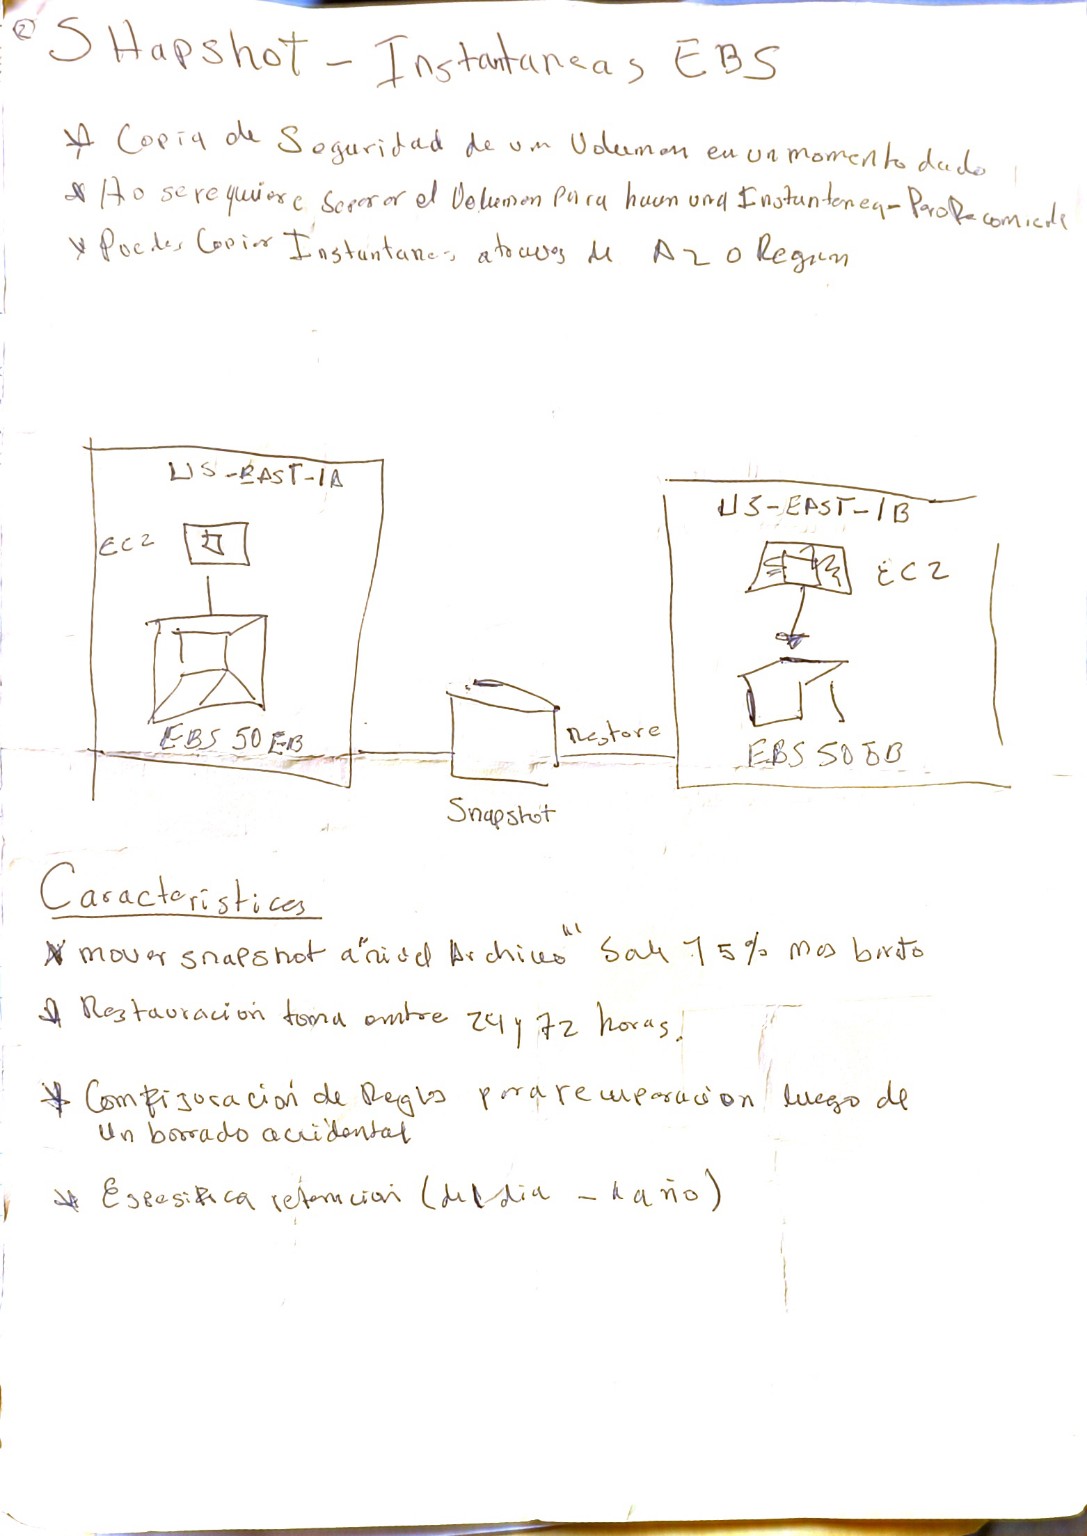 ②
SHapshot - Instantaneas EBS
* Copia de Seguridad de un Volumen en un momento dado
* No se requiere separar el Volumen para hacer una Instantanea - Pero Recomiend
* Puedes Copiar Instantaneas atraves de AZ o Region
US-EAST-1A
US-EAST-1B
EC2
EC2
EBS 50 EB
Restore
EBS 50 GB
Snapshot
Caracteristicas
* mover snapshot a "nivel Archivo" Sale 75% mas barato
* Restauracion toma entre 24 y 72 horas.
* Configuracion de Reglas para recuperacion luego de
un borrado accidental
* Espesifica retencion (del dia - 1 año)